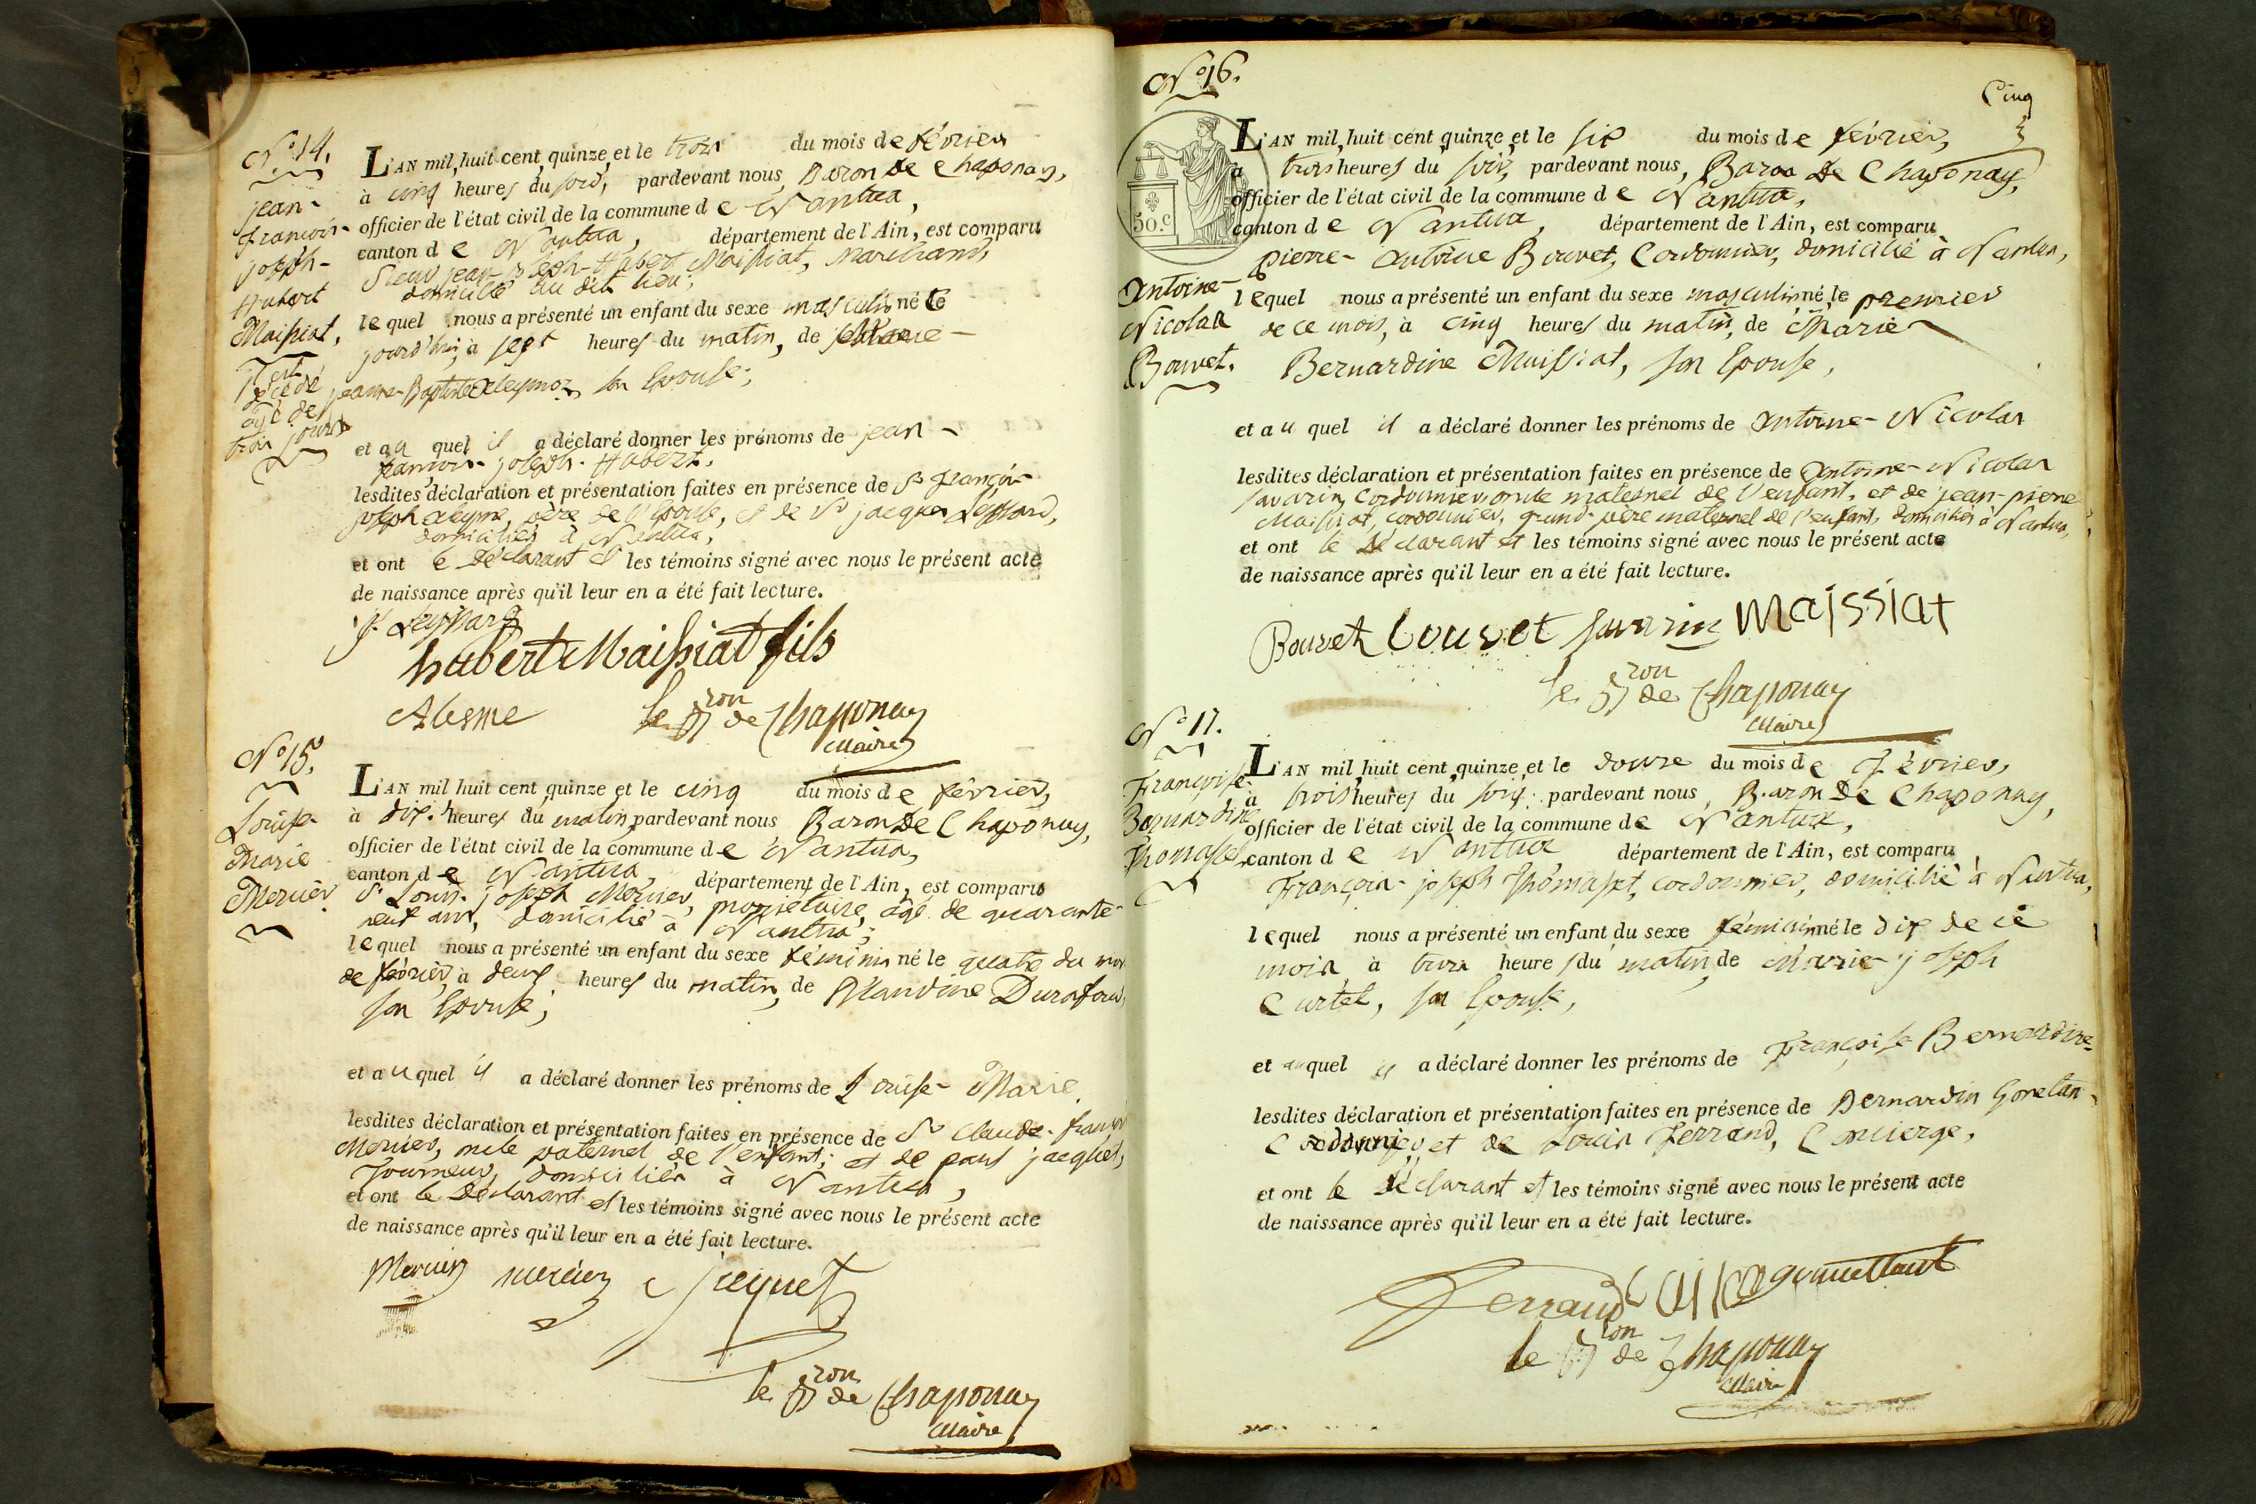 N.° 14.
jean-
françois-
joseph-
Hubert
Maissiat,
est
décédé
agé de
trois jours
L'AN mil huit cent quinze et le trois du mois de février
à cinq heures du soir, pardevant nous Baron De Chaponay,
officier de l'état civil de la commune de Nantua,
canton de Nantua, département de l'Ain, est comparu
Sieur jean-joseph-Hubert Maissiat, Marchand,
domicilié au dit lieu,
lequel nous a présenté un enfant du sexe masculin né le
jourd'hui, à sept heures du matin, de
jeanne-Baptiste son Epouse,
et au quel il a déclaré donner les prénoms de jean-
françois-joseph-Hubert.
lesdites déclaration et présentation faites en présence de Sr françois
joseph père de l'épouse, et de Sr jacques Leyssard,
domiciliés à Nantua,
et ont le Déclarant et les témoins signé avec nous le présent acte
de naissance après qu'il leur en a été fait lecture.
J. Leyssard
hubert Maissiat fils
le Bron de Chaponay
Maire
N.° 15.
Louise
Marie
Mercier
L'AN mil huit cent quinze et le cinq du mois de février,
à dix heures du matin pardevant nous Baron De Chaponay,
officier de l'état civil de la commune de Nantua,
canton de Nantua, département de l'Ain, est comparu
Sr Louis-joseph Mercier, propriétaire, agé de quarante-
neuf ans, domicilié à Nantua;
lequel nous a présenté un enfant du sexe féminin né le quatre du mois
de février, à deux heures du matin, de Claudine Durafour,
son Epouse;
et au quel il a déclaré donner les prénoms de Louise-Marie
lesdites déclaration et présentation faites en présence de Sr Claude-françois
Mercier, oncle paternel de l'enfant; et de paul jacquet,
Tourneur, domiciliés à Nantua,
et ont le Déclarant et les témoins signé avec nous le présent acte
de naissance après qu'il leur en a été fait lecture.
Mercier mercier jacquet
le Bron de Chaponay
Maire
N.° 16.
Cinq
50.c
Antoine-
Nicolas
Bouvet.
L'AN mil huit cent quinze et le six du mois de février,
à trois heures du soir, pardevant nous, Baron De Chaponay,
officier de l'état civil de la commune de Nantua,
canton de Nantua, département de l'Ain, est comparu
pierre-antoine Bouvet, Cordonnier, domicilié à Nantua,
lequel nous a présenté un enfant du sexe masculin né le premier
de ce mois, à cinq heures du matin, de Marie-
Bernardine Maissiat, son Epouse,
et au quel il a déclaré donner les prénoms de antoine-Nicolas
lesdites déclaration et présentation faites en présence de antoine-Nicolas
savarin, Cordonnier, oncle maternel de l'enfant, et de jean-pierre
Maissiat, cordonnier, grand-père maternel de l'enfant, domiciliés à Nantua,
et ont le Déclarant et les témoins signé avec nous le présent acte
de naissance après qu'il leur en a été fait lecture.
Bouvet bouvet savarin Maissiat
le Bron de Chaponay
Maire
N.° 17.
Françoise
Bernardine
Thomasset
L'AN mil huit cent quinze et le douze du mois de février,
à trois heures du soir, pardevant nous, Baron De Chaponay,
officier de l'état civil de la commune de Nantua,
canton de Nantua département de l'Ain, est comparu
François-joseph Thomasset, cordonnier, domicilié à Nantua,
lequel nous a présenté un enfant du sexe féminin né le dix de ce
mois à trois heures du matin, de Marie-joseph
Curtet, son Epouse,
et auquel il a déclaré donner les prénoms de Françoise Bernardine
lesdites déclaration et présentation faites en présence de Bernardin Gonetan
Cordonnier, et de Louis Ferrand, Concierge,
et ont le Déclarant et les témoins signé avec nous le présent acte
de naissance après qu'il leur en a été fait lecture.
Ferrand gonnettant
le Bron de Chaponay
Maire